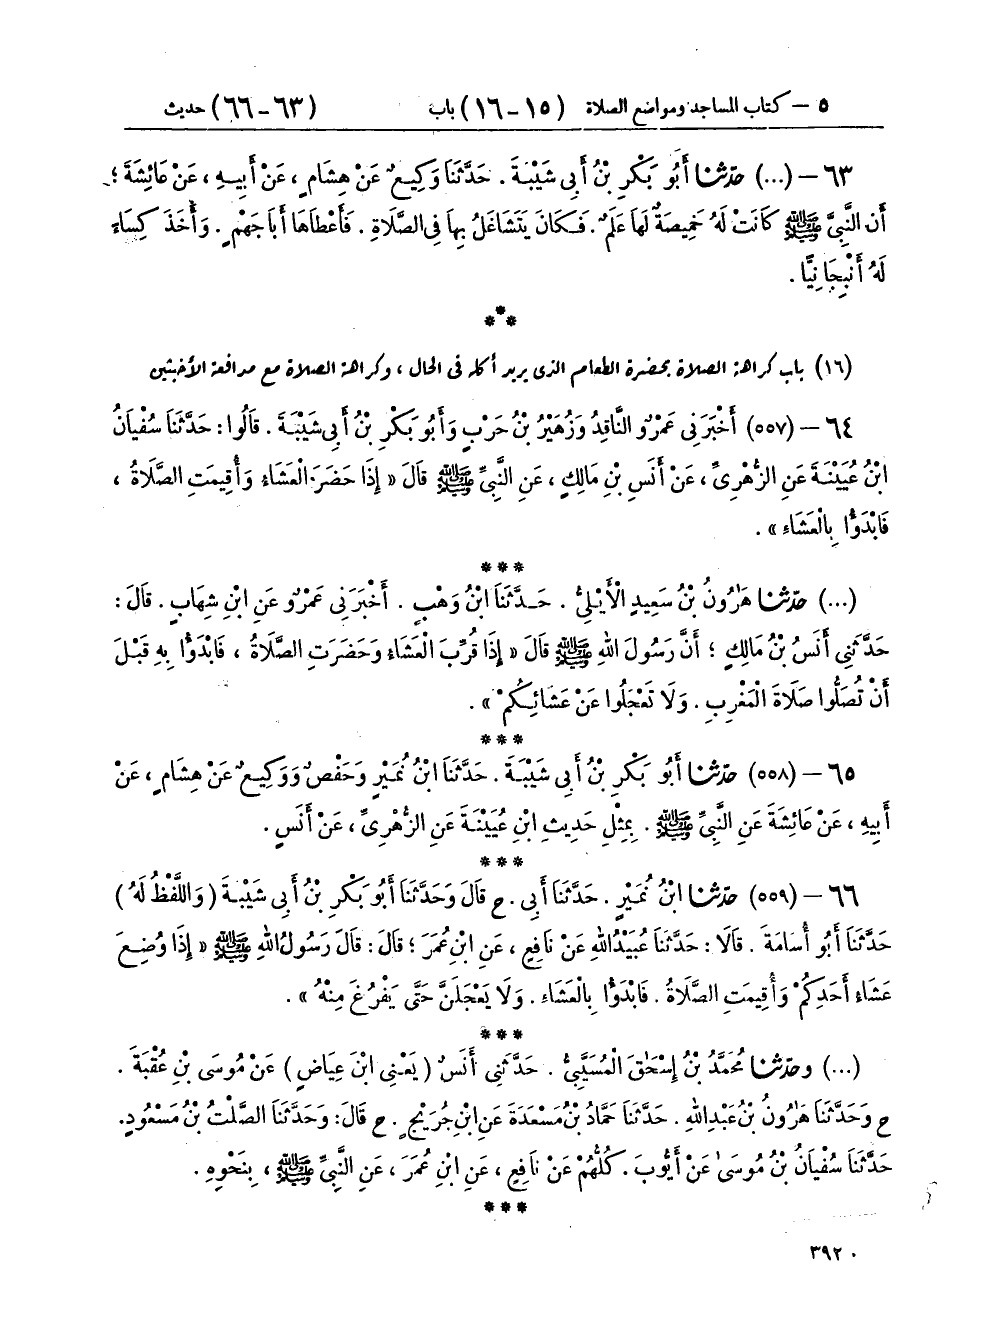 ٥ – كتاب المساجد ومواضع الصلاة (١٥–١٦) باب (٦٣–٦٦) حديث
٦٣ – (...) حَدَّثَنَا أَبُو بَكْرِ بْنُ أَبِي شَيْبَةَ . حَدَّثَنَا وَكِيعٌ عَنْ هِشَامٍ ، عَنْ أَبِيهِ ، عَنْ عَائِشَةَ ؛
أَنَّ النَّبِيَّ ﷺ كَانَتْ لَهُ خَمِيصَةٌ لَهَا عَلَمٌ . فَكَانَ يَتَشَاغَلُ بِهَا فِي الصَّلَاةِ . فَأَعْطَاهَا أَبَا جَهْمٍ . وَأَخَذَ كِسَاءً
لَهُ أَنْبِجَانِيًّا .
***
(١٦) باب كراهة الصلاة بحضرة الطعام الذى يريد أكله فى الحال ، وكراهة الصلاة مع مدافعة الأخبثين
٦٤ – (٥٥٧) أَخْبَرَنِي عَمْرٌو النَّاقِدُ وَزُهَيْرُ بْنُ حَرْبٍ وَأَبُو بَكْرِ بْنُ أَبِي شَيْبَةَ . قَالُوا : حَدَّثَنَا سُفْيَانُ
ابْنُ عُيَيْنَةَ عَنِ الزُّهْرِيِّ ، عَنْ أَنَسِ بْنِ مَالِكٍ ، عَنِ النَّبِيِّ ﷺ قَالَ « إِذَا حَضَرَ الْعَشَاءُ وَأُقِيمَتِ الصَّلَاةُ ،
فَابْدَؤُا بِالْعَشَاءِ » .
***
(...) حَدَّثَنَا هَٰرُونُ بْنُ سَعِيدٍ الْأَيْلِيُّ . حَدَّثَنَا ابْنُ وَهْبٍ . أَخْبَرَنِي عَمْرٌو عَنِ ابْنِ شِهَابٍ . قَالَ :
حَدَّثَنِي أَنَسُ بْنُ مَالِكٍ ؛ أَنَّ رَسُولَ اللهِ ﷺ قَالَ « إِذَا قُرِّبَ الْعَشَاءُ وَحَضَرَتِ الصَّلَاةُ ، فَابْدَؤُا بِهِ قَبْلَ
أَنْ تُصَلُّوا صَلَاةَ الْمَغْرِبِ . وَلَا تَعْجَلُوا عَنْ عَشَائِكُمْ » .
***
٦٥ – (٥٥٨) حَدَّثَنَا أَبُو بَكْرِ بْنُ أَبِي شَيْبَةَ . حَدَّثَنَا ابْنُ نُمَيْرٍ وَحَفْصٌ وَوَكِيعٌ عَنْ هِشَامٍ ، عَنْ
أَبِيهِ ، عَنْ عَائِشَةَ عَنِ النَّبِيِّ ﷺ . بِمِثْلِ حَدِيثِ ابْنِ عُيَيْنَةَ عَنِ الزُّهْرِيِّ ، عَنْ أَنَسٍ .
***
٦٦ – (٥٥٩) حَدَّثَنَا ابْنُ نُمَيْرٍ . حَدَّثَنَا أَبِي . ح قَالَ وَحَدَّثَنَا أَبُو بَكْرِ بْنُ أَبِي شَيْبَةَ ( وَاللَّفْظُ لَهُ )
حَدَّثَنَا أَبُو أُسَامَةَ . قَالَا : حَدَّثَنَا عُبَيْدُاللهِ عَنْ نَافِعٍ ، عَنِ ابْنِ عُمَرَ ؛ قَالَ : قَالَ رَسُولُ اللهِ ﷺ « إِذَا وُضِعَ
عَشَاءُ أَحَدِكُمْ وَأُقِيمَتِ الصَّلَاةُ . فَابْدَؤُا بِالْعَشَاءِ . وَلَا يَعْجَلَنَّ حَتَّى يَفْرُغَ مِنْهُ » .
***
(...) وحَدَّثَنَا مُحَمَّدُ بْنُ إِسْحَاقَ الْمُسَيَّبِيُّ . حَدَّثَنِي أَنَسٌ ( يَعْنِي ابْنَ عِيَاضٍ ) عَنْ مُوسَى بْنِ عُقْبَةَ .
ح وَحَدَّثَنَا هَٰرُونُ بْنُ عَبْدِاللهِ . حَدَّثَنَا حَمَّادُ بْنُ مَسْعَدَةَ عَنِ ابْنِ جُرَيْجٍ . ح قَالَ : وَحَدَّثَنَا الصَّلْتُ بْنُ مَسْعُودٍ .
حَدَّثَنَا سُفْيَانُ بْنُ مُوسَىٰ عَنْ أَيُّوبَ . كُلُّهُمْ عَنْ نَافِعٍ ، عَنِ ابْنِ عُمَرَ ، عَنِ النَّبِيِّ ﷺ ، بِنَحْوِهِ .
***
٣٩٢